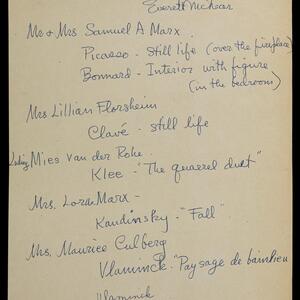 Everett McNear
Mr & Mrs Samuel A Marx
Picasso - Still life (over the fireplace)
Bonnard - Interior with figure
(in the bedroom)
Mrs Lillian Florsheim
Clavé - still life
Ludwig Mies van der Rohe -
Klee - "The quarrel duet"
Mrs. Lora Marx -
Kandinsky - "Fall"
Mrs. Maurice Culberg
Vlaminck - "Paysage de banlieu
Vlaminck